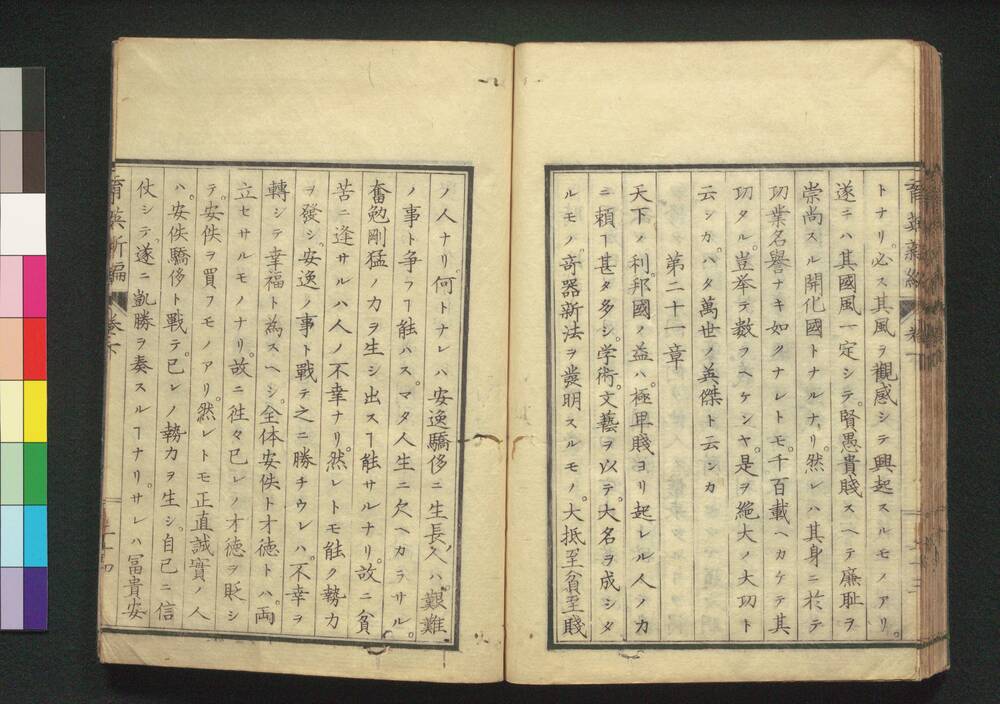 トナリ必ス其風ヲ觀感シテ興起スルモノアリ。
遂ニハ其國風一定シテ。賢愚貴賤スヘテ廉耻ヲ
崇尚スル開化國トナルナリ。然レハ其身ニ於テ
功業名譽ナキ如クナレトモ。千百載ヘカケテ其
功タル。豈举テ数フヘケンヤ。是ヲ絶大ノ大功ト
云シカ。ハタ萬世ノ英傑ト云ンカ
第二十一章
天下ノ利。邦國ノ益ハ。極卑賤ヨリ起レル人ノカ
ニ頼ヿ甚タ多シ。学術。文藝ヲ以テ。大名ヲ成シタ
ルモノ。奇器新法ヲ發明スルモノ。大抵至貧至賤
ノ人ナリ。何トナレハ安逸驕侈ニ生長ノ人ハ。艱難
ノ事ト争フヿ能ハス。マタ人生ニ欠ヘカラサル。
奮勉剛猛ノ力ヲ生シ出スヿ能サルナリ。故ニ貧
苦ニ逢サルハ人ノ不幸ナリ。然レトモ能ク勢力
ヲ發シ。安逸ノ事ト戰テ之ニ勝チウレハ。不幸ヲ
轉シテ幸福ト為スヘシ。全体安佚ト才徳トハ。両
立セサルモノナリ。故ニ往々已レノ才徳ヲ貶シ
テ。安佚ヲ買フモノアリ。然レトモ正直誠實ノ人
ハ。安佚驕侈ト戰テ。已レノ勢カヲ生シ。自已ニ信
仗シテ。遂ニ凱勝ヲ奏スルヿナリ。サレハ冨貴安
育英新編
巻下
二十四